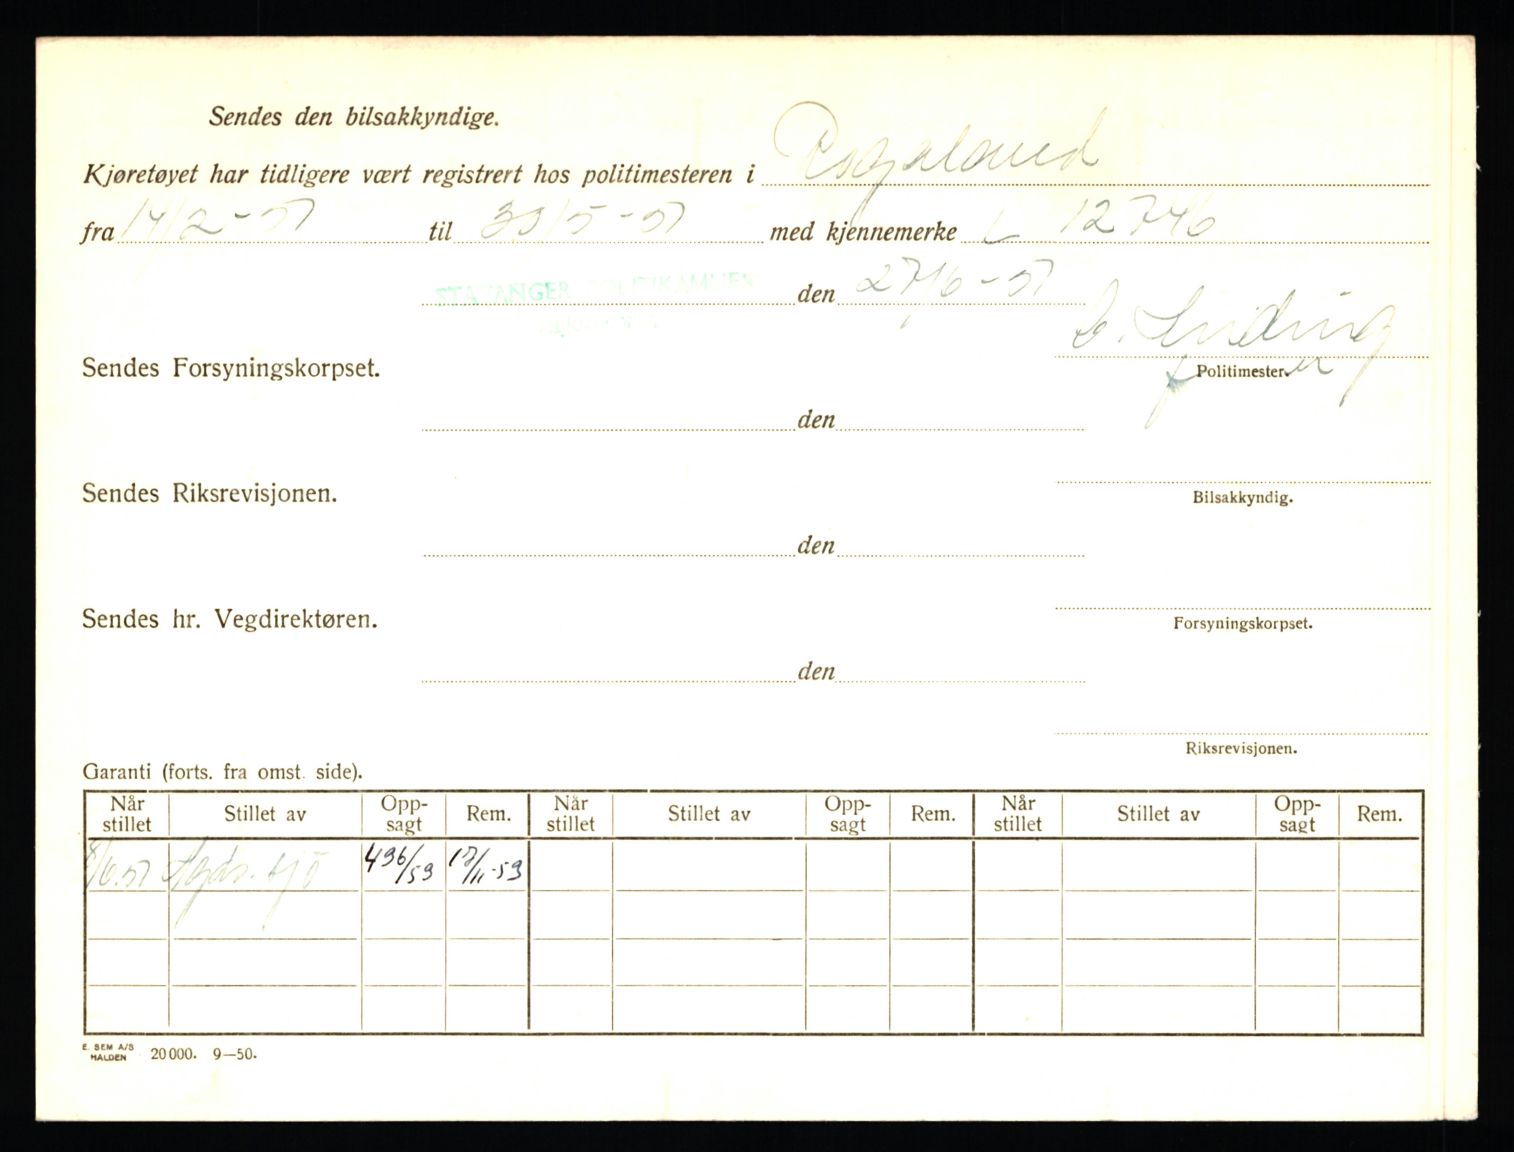 Sendes den bilsakkyndige.
Kjøretøyet har tidligere vært registrert hos politimesteren i Rogaland
fra 14/2-51 til 30/5-51 med kjennemerke L 12746
STAVANGER POLITIKAMMER den 27/6-51
Sendes Forsyningskorpset.
Politimester.
den
Sendes Riksrevisjonen.
Bilsakkyndig.
den
Sendes hr. Vegdirektøren.
Forsyningskorpset.
den
Riksrevisjonen.
Garanti (forts. fra omst. side).
Når stillet Stillet av Opp-sagt Rem. Når stillet Stillet av Opp-sagt Rem. Når stillet Stillet av Opp-sagt Rem.
8/6.51 496/59 17/11-59
E. SEM A/S HALDEN 20000. 9—50.